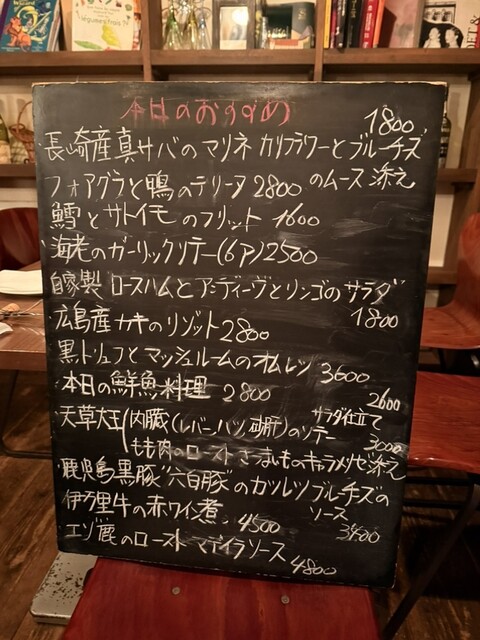 本日のおすすめ
1800
・長崎産真サバのマリネ カリフラワーとブルーチーズ
のムース添え
フォアグラと鴨のテリーヌ 2800
鱈とサトイモのフリット 1600
海老のガーリックソテー(6P) 2500
自家製 ロースハムとアンディーヴとリンゴのサラダ
1800
広島産カキのリゾット 2800
黒トリュフとマッシュルームのオムレツ 3600
本日の鮮魚料理 2800
2600
天草大王 内臓(レバーハツ砂肝)のソテー サラダ仕立て
もも肉のロースト さつまいものキャラメリゼ添え 3000
・鹿児島黒豚"六白豚"のカツレツブルーチーズの
ソース 3400
伊万里牛の赤ワイン煮 4500
エゾ鹿のロースト マデイラソース 4800